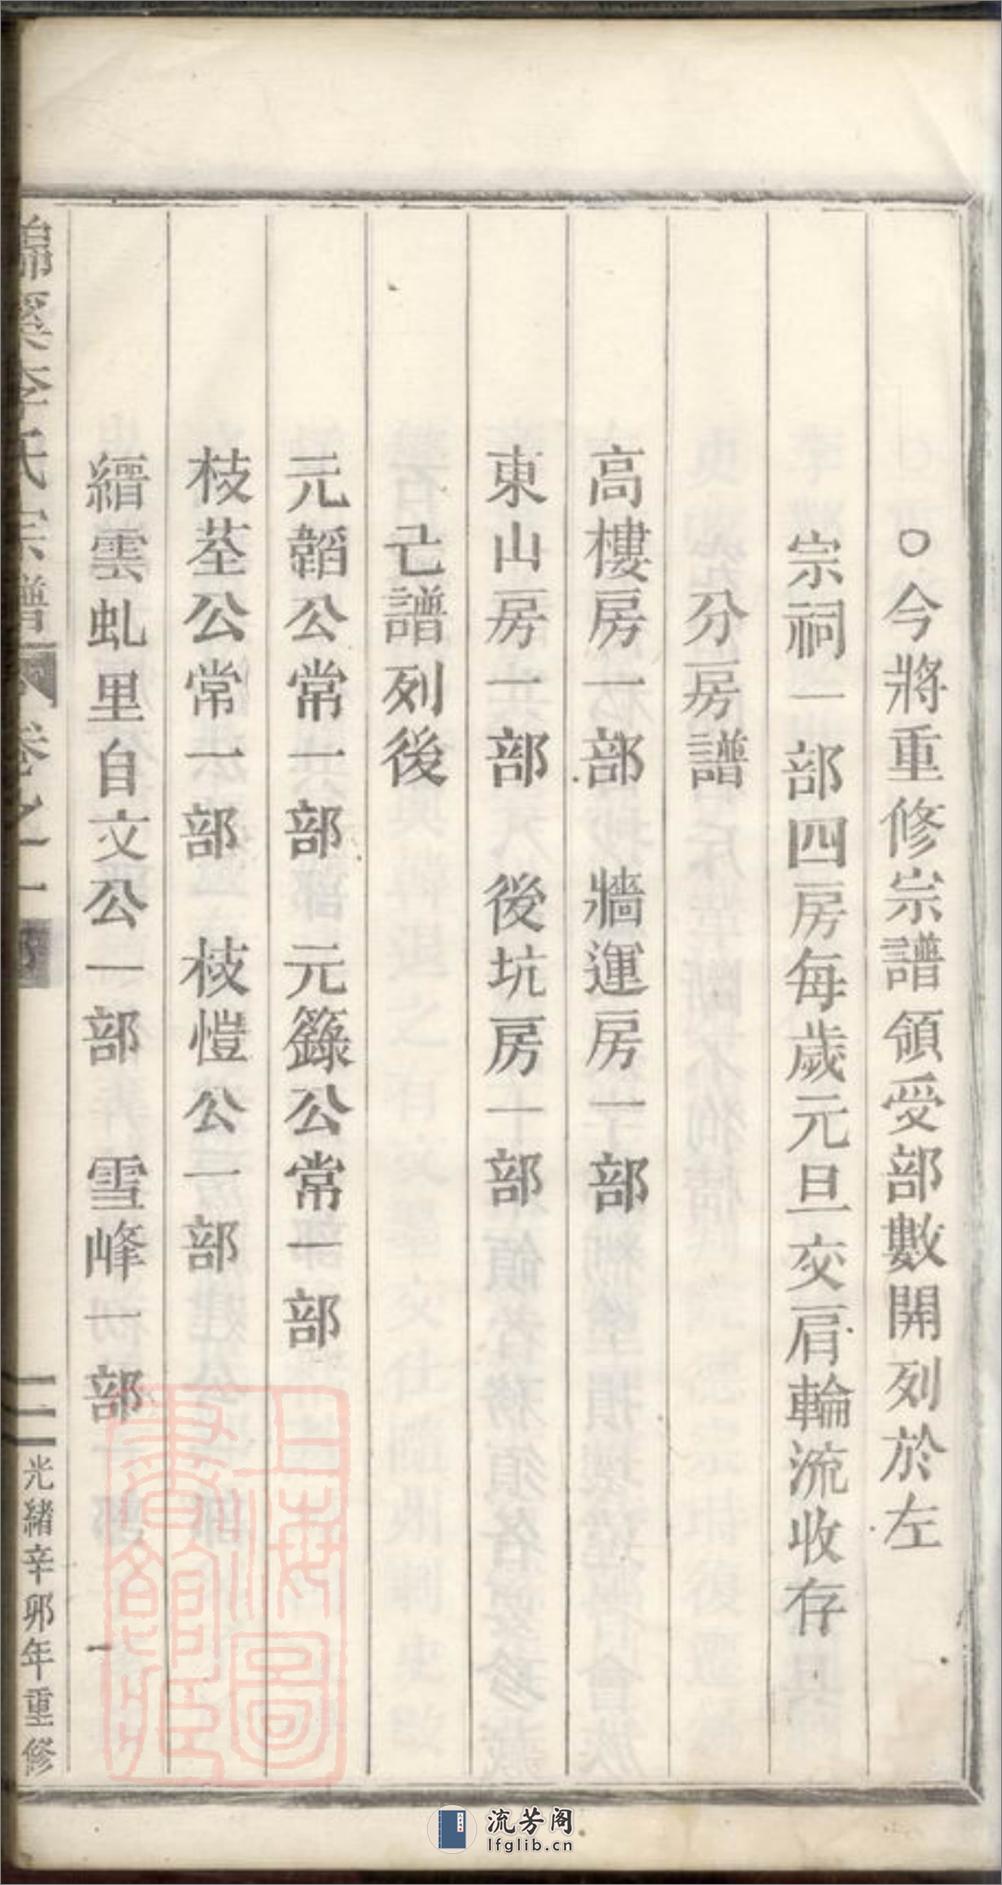 ○今將重修宗譜領受部數開列於左
宗祠一部四房每歲元旦交肩輪流收存
分房譜
高樓房一部 牆運房一部
東山房一部 後坑房一部
己譜列後
元韜公常一部 元籙公常一部
枝荃公常一部 枝愷公一部
縉雲虬里自文公一部 雪峰一部
錦溪李氏宗譜 卷之一
光緒辛卯年重修
上海圖書館藏
流芳阁
lfglib.cn